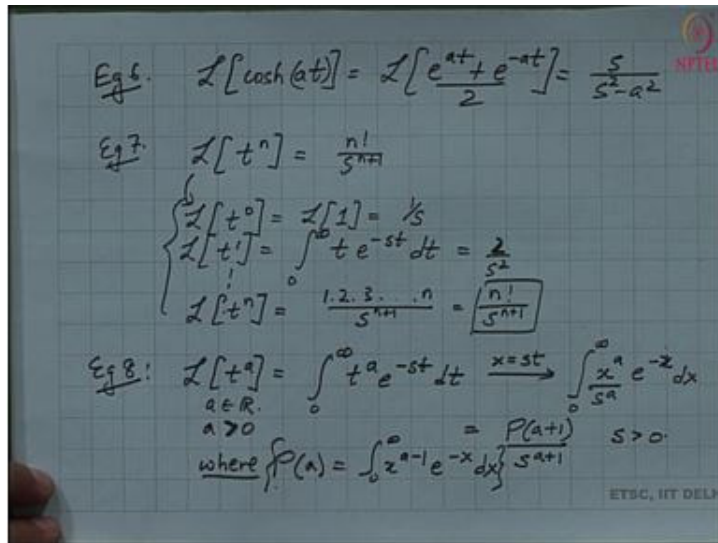 Eg 6. ℒ[cosh(at)] = ℒ[(e^{at} + e^{-at})/2] = s/(s²-a²)
NPTEL
Eg 7. ℒ[t^n] = n!/s^{n+1}
ℒ[t^0] = ℒ[1] = 1/s
ℒ[t^1] = ∫_0^∞ t e^{-st} dt = 2/s²
ℒ[t^n] = 1.2.3....n/s^{n+1} = n!/s^{n+1}
Eg 8: ℒ[t^a] = ∫_0^∞ t^a e^{-st} dt x=st → ∫_0^∞ x^a/s^a e^{-x} dx
a ∈ ℝ.
a > 0 = Γ(a+1)/s^{a+1} s > 0.
where {Γ(a) = ∫_0^∞ x^{a-1} e^{-x} dx}
ETSC, IIT DELH